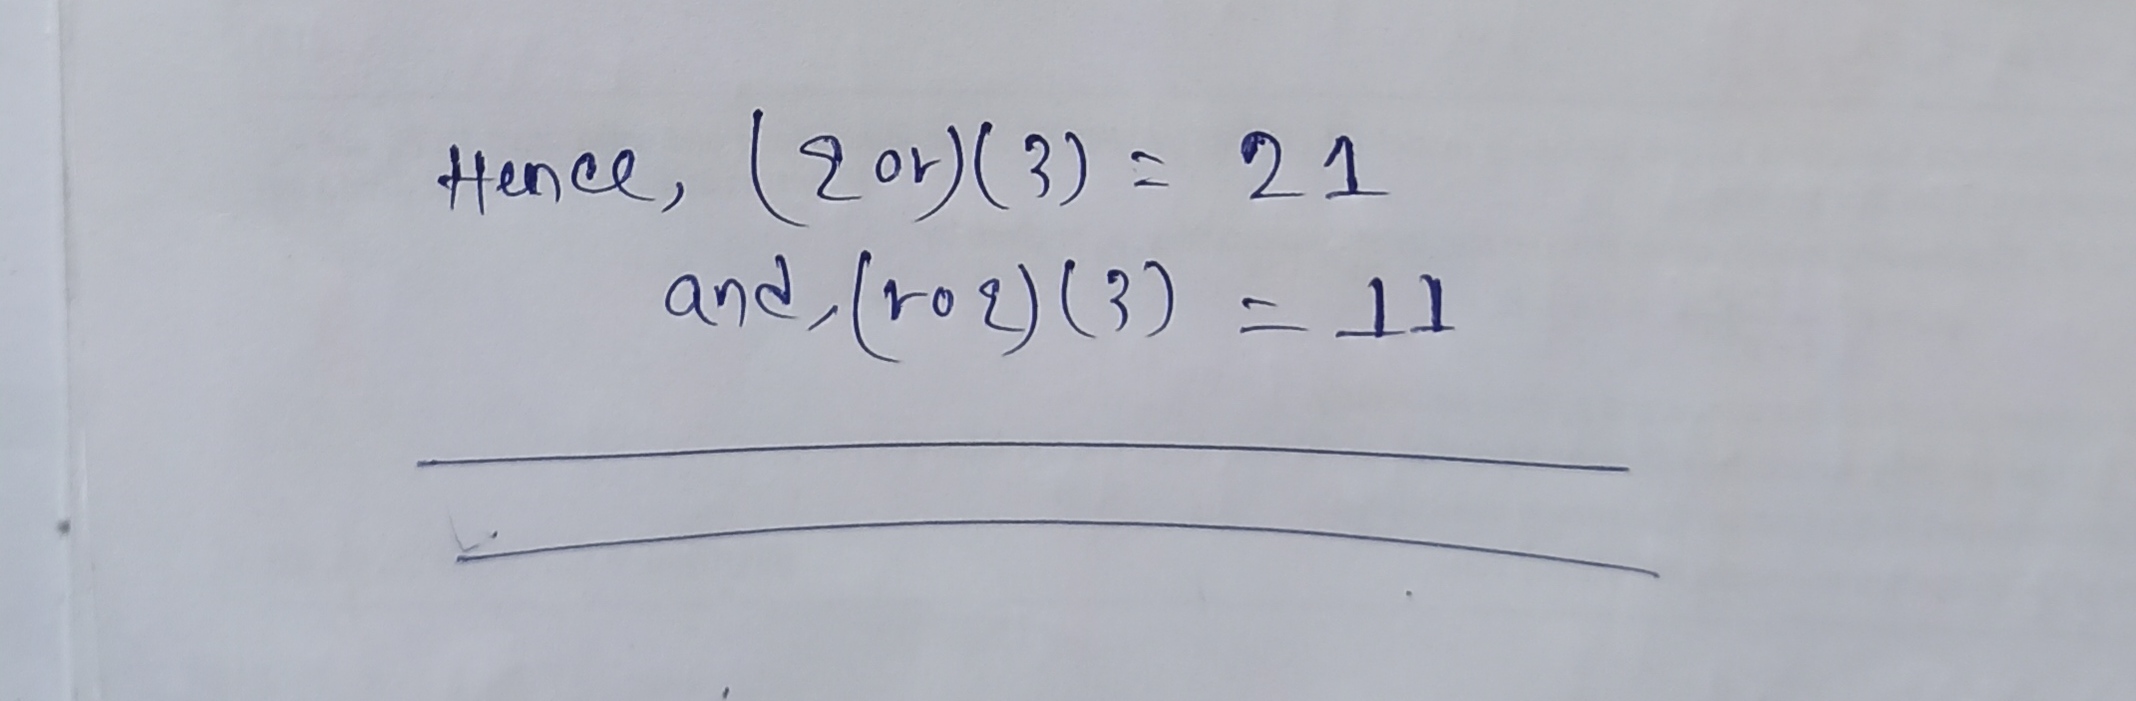 Hence, (q o r)(3) = 21
and, (r o q)(3) = 11